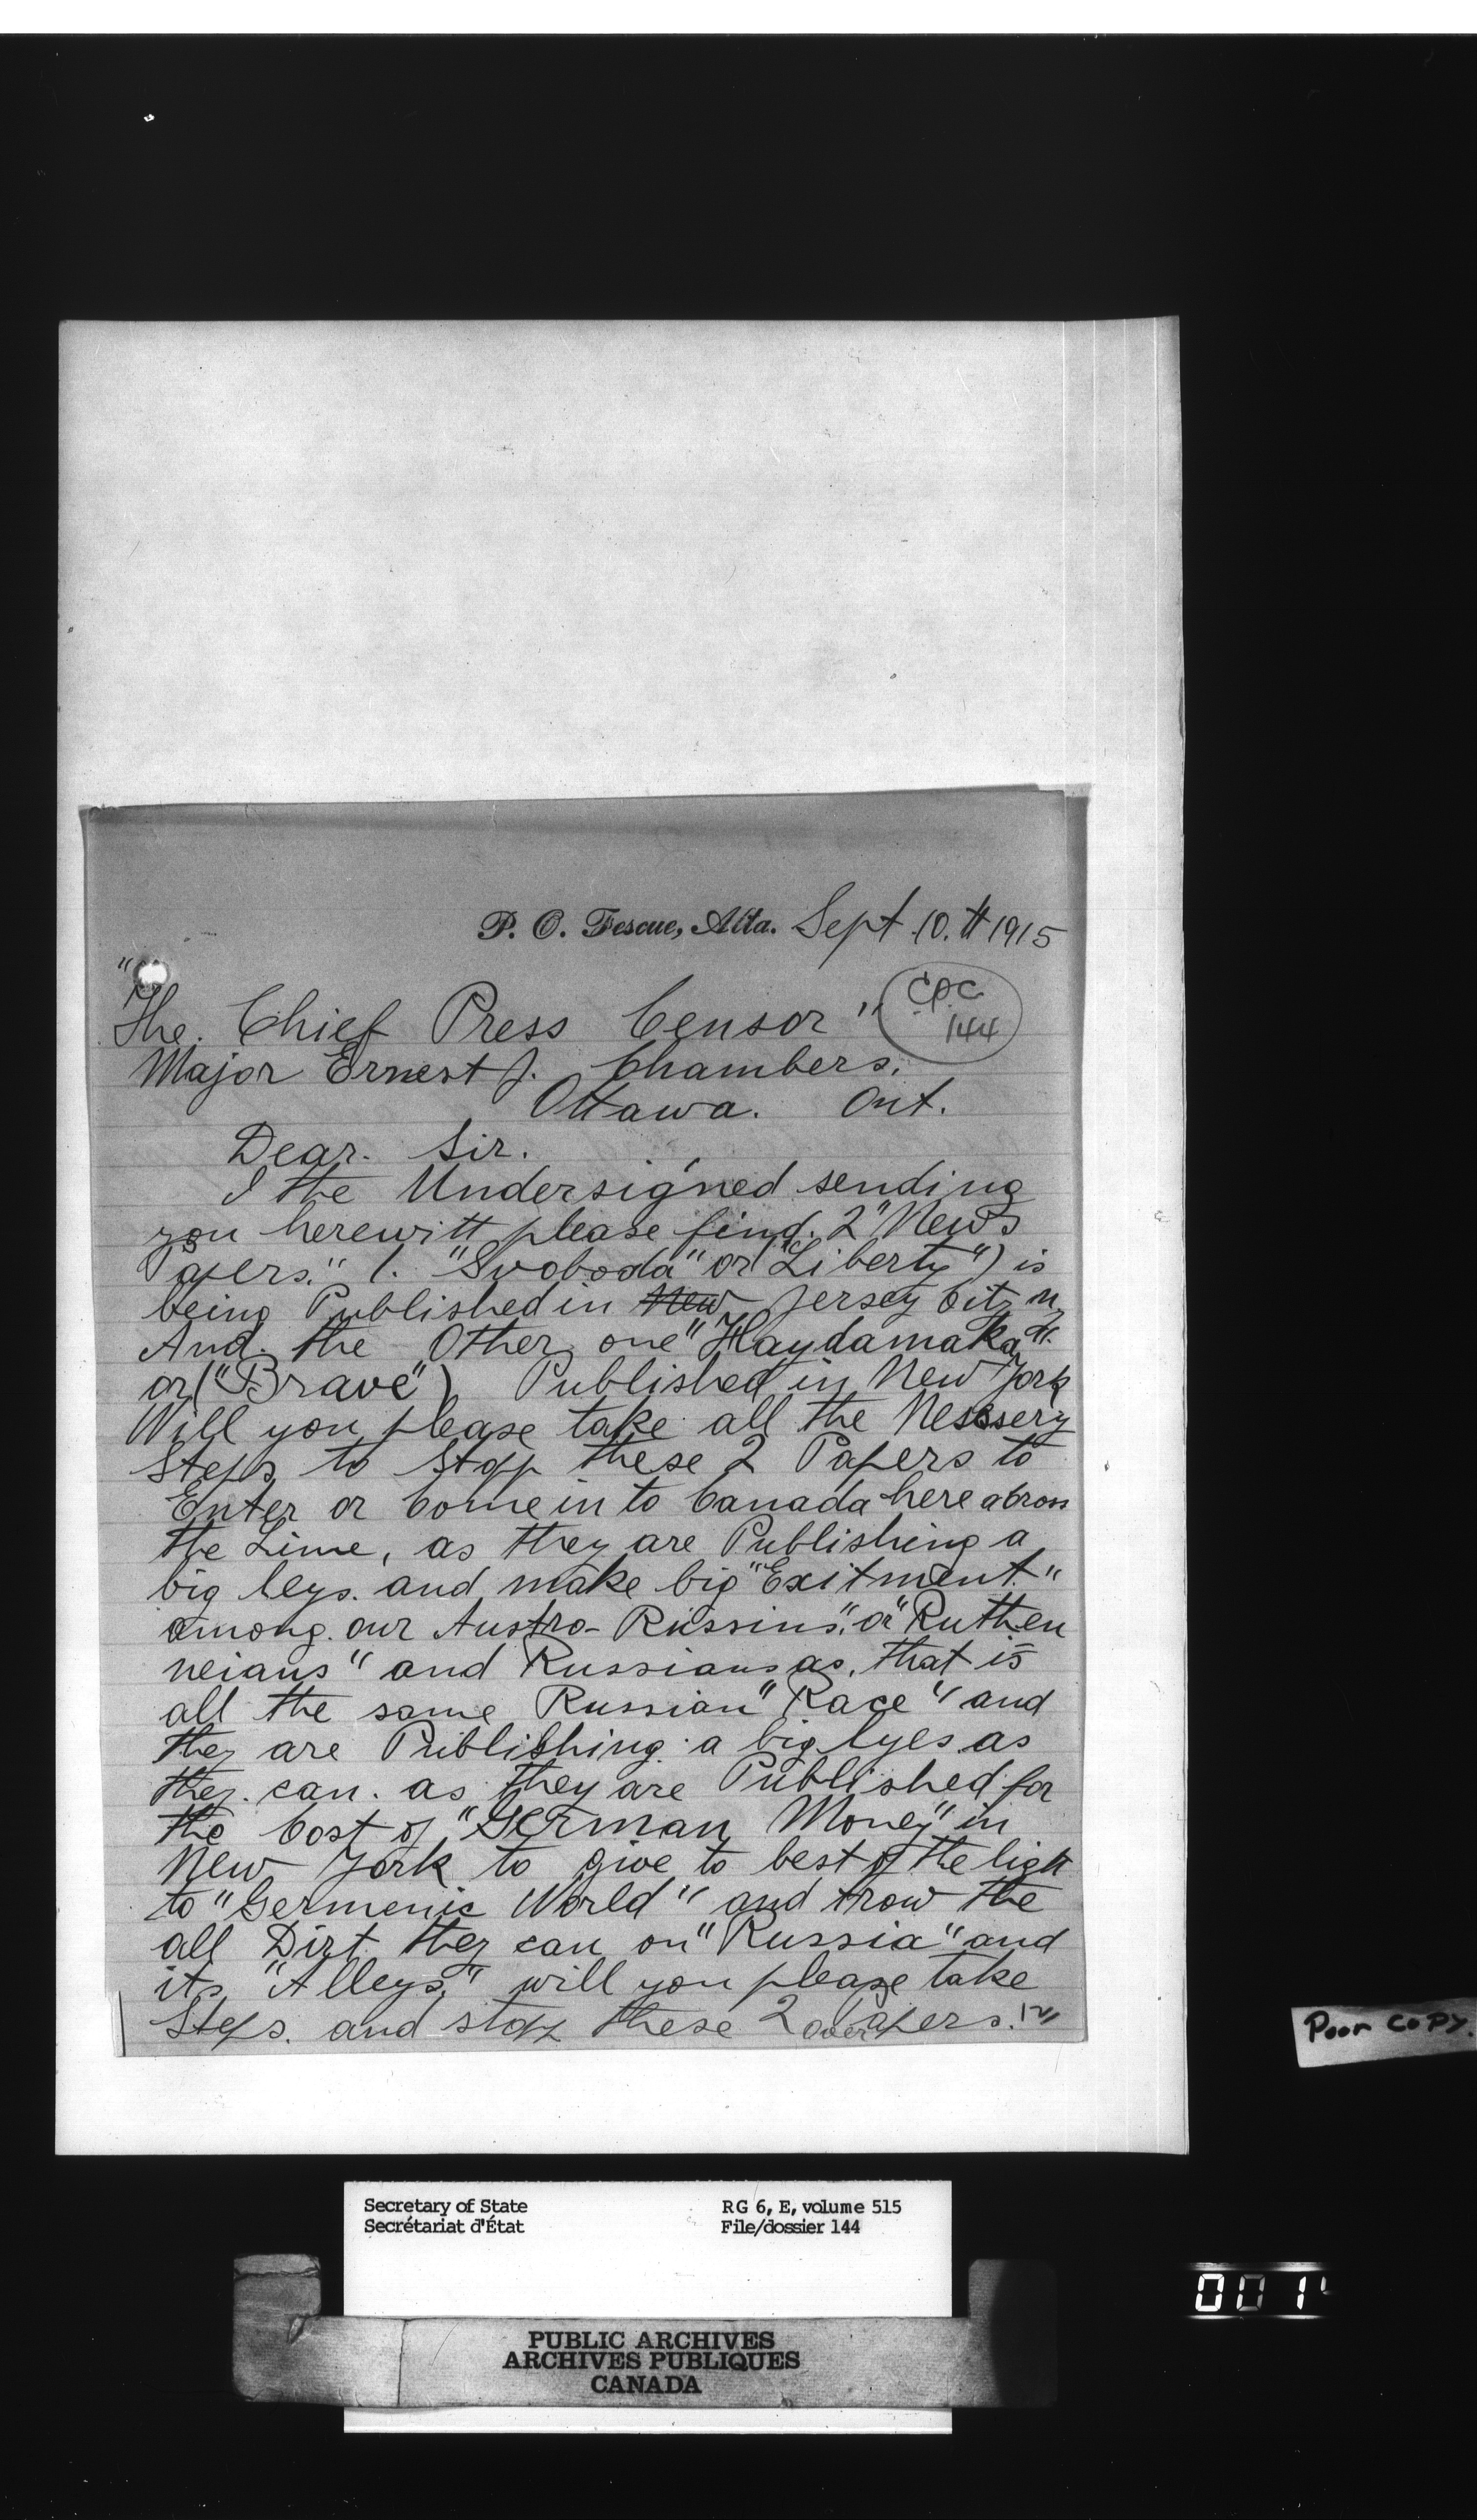 P. O. Fescue, Alta. Sept 10.tt 1915
"The. Chief Press Censor"
CPC
144
Major Ernest J. Chambers.
Ottawa. Ont.
Dear. Sir.
I the Undersigned sending
you herewitt please find. 2 "News
Papers." 1. "Svoboda" or ("Liberty") is
being Published in New Jersey City N.
And. the Other one "Haydamaka"
or ("Brave") Published in New York
Will you please take all the Nesessery
Steps to stop these 2 Papers to
Enter or Come in to Canada here across
the Line, as they are Publishing a
big leys. and make big "Exitment"
among. our Austro-Russins". or "Ruthen
neians" and Russians as. that is
all the same Russian "Race" and
they are Publishing a big lyes as
they. can. as they are Published for
the Cost of "German Money" in
New York to give to best of the ligtt
to "Germenic World" and trow the
all Dirt they can on "Russia" and
its "Alleys," will you please take
Steps. and stop these 2 Papers.!"
over
Poor Copy.
Secretary of State
Secrétariat d'État
RG 6, E, volume 515
File/dossier 144
001
PUBLIC ARCHIVES
ARCHIVES PUBLIQUES
CANADA